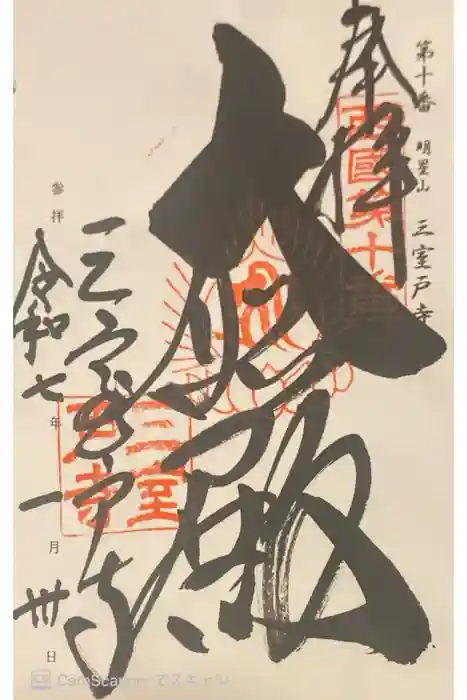 第十番 明星山 三室戸寺
奉拝
西國第十番
大悲殿
三室戸寺
三室戸寺
参拝
令和七年一月卅日
CamScannerでスキャン